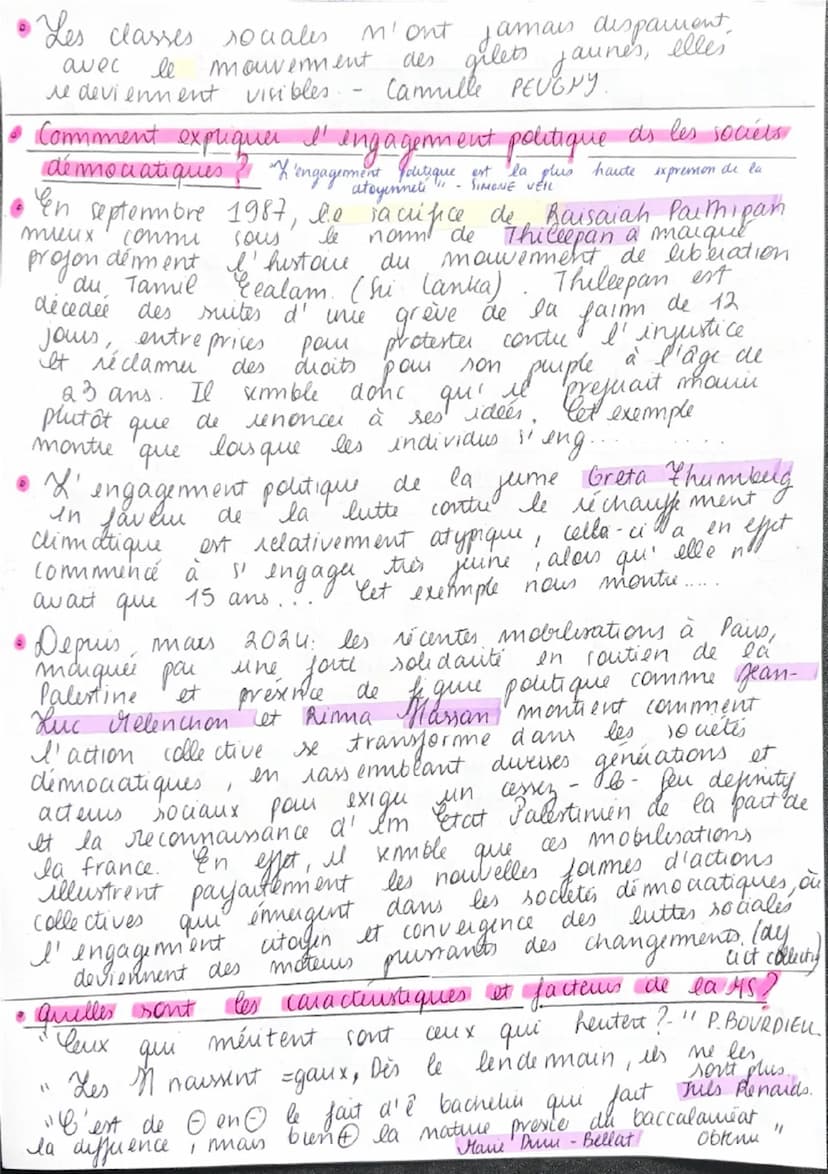 • Les classes sociales n'ont jamais disparuent,
avec le mouvement des gilets jaunes, elles
redeviennent visibles. - Camille PEUGNY.
• Comment expliquer l'engagement politique ds les sociétés
démocratiques? "L'engagement politique est la plus haute expression de la
citoyenneté" - SIMONE VEIL
• En septembre 1987, le sacrifice de Raisaiah Parthipan
mieux connu sous le nom de Thileepan a marqué
profondément l'histoire du mouvement de libération
du Tamil Eealam (Sri Lanka). Thileepan est
décédée des suites d'une grève de la faim de 12
jours, entreprises pour protester contre l'injustice
et réclamer des droits pour son peuple à l'âge de
23 ans. Il semble donc qu'il préférait mourir
plutôt que de renoncer à ses idées. Cet exemple
montre que lorsque les individus s'eng... ....
• L'engagement politique de la jeune Greta Thumberg
en faveur de la lutte contre le réchauffement
climatique est relativement atypique, celle-ci a en effet
commencé à s'engager très jeune, alors qu'elle n'
avait que 15 ans... Cet exemple nous montre.....
• Depuis mars 2024: les récentes mobilisations à Paris,
marquée par une forte solidarité en soutien de la
Palestine et présence de figure politique comme Jean-
Luc Melenchon et Rima Hassan montrent comment
l'action collective se transforme dans les sociétés
démocratiques, en rassemblant diverses générations et
acteurs sociaux pour exiger un cessez-le-feu definitif
et la reconnaissance d'un État Palestinien de la part de
la france. En effet, il semble que ces mobilisations
illustrent parfaitement les nouvelles formes d'actions
collectives qui émergent dans les sociétés démocratiques, où
l'engagement citoyen et convergence des luttes sociales
deviennent des moteurs puissants des changements.
• Quelles sont les caractéristiques et facteurs de la MS?
"Ceux qui méritent sont ceux qui héritent?" P. BOURDIEU.
"Les H naissent =gaux, Dès le lendemain, ils ne les
sont plus. Juls Renards.
"C'est de ⊖ en ⊖ le fait d'ê bachelier qui fait
la différence, mais bien ⊕ la nature précise du baccalauréat
obtenu" Marie Duru-Bellat